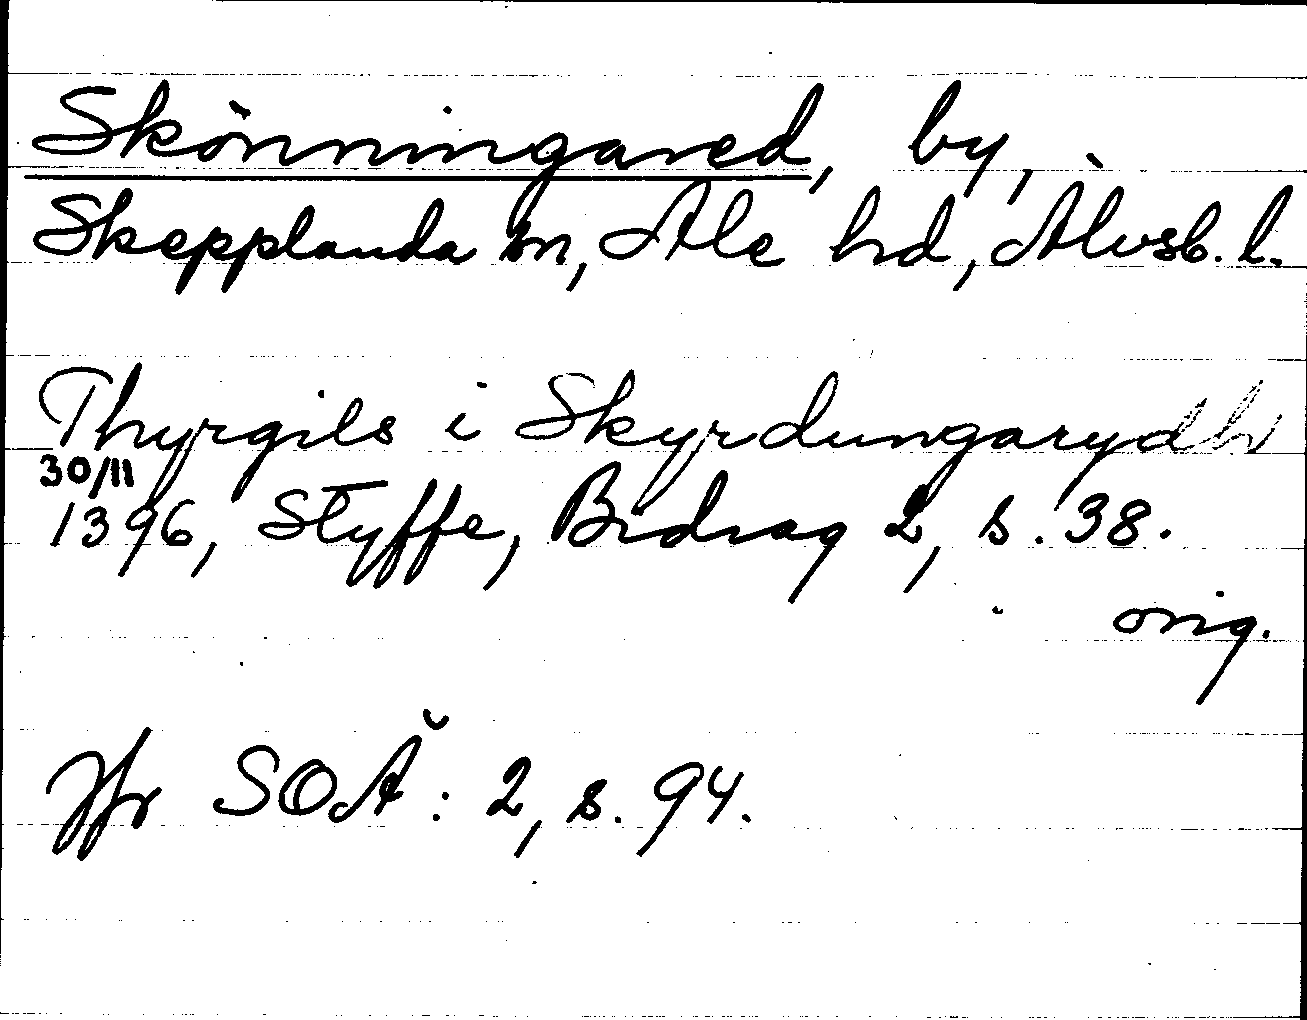 Skönningared, by,
Skepplanda sn, Ale hd, Älvsb. l.
Thyrgils i Skyrdungarydh
30/11
1396, Styffe, Bidrag 2, s. 38.
orig.
Jfr SOÄ: 2, s. 94.